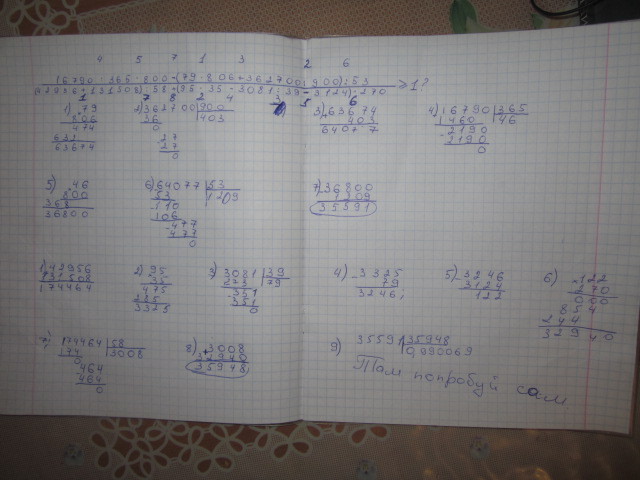 4 5 7 1 3 2 6
16790 : 365 · 800 - (79 · 806 + 362700 : 900) : 53
(42956 + 131508) : 58 - (95 · 35 - 3081 : 39 - 3124) · 270
≥ 1?
1 7 8 2 4 3 5 6
1) 79
806
474
632
63674
2) 362700 | 900
36 403
27
27
0
3) 63674
403
64077
4) 16790 | 365
1460 46
- 2190
2190
0
5) 46
800
368
36800
6) 64077 | 53
53 1209
110
106
- 477
477
0
7) 36800
1209
35591
1) 42956
131508
174464
2) 95
35
475
285
3325
3) 3081 | 39
273 79
351
351
0
4) - 3325
79
3246
5) - 3246
3124
122
6) 122
270
000
854
244
32940
7) 174464 | 58
174 3008
0
- 464
464
0
8) 3008
+ 32940
35948
9) 35591 | 35948
0,990069
Там попробуй сам